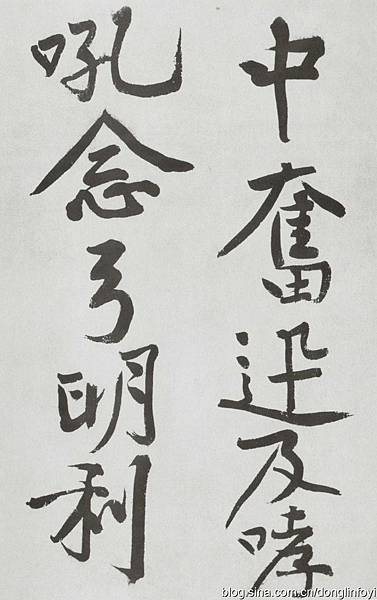 中奮迅及哮
吼念弓明利
blog.sina.com.cn/donglinfoyi